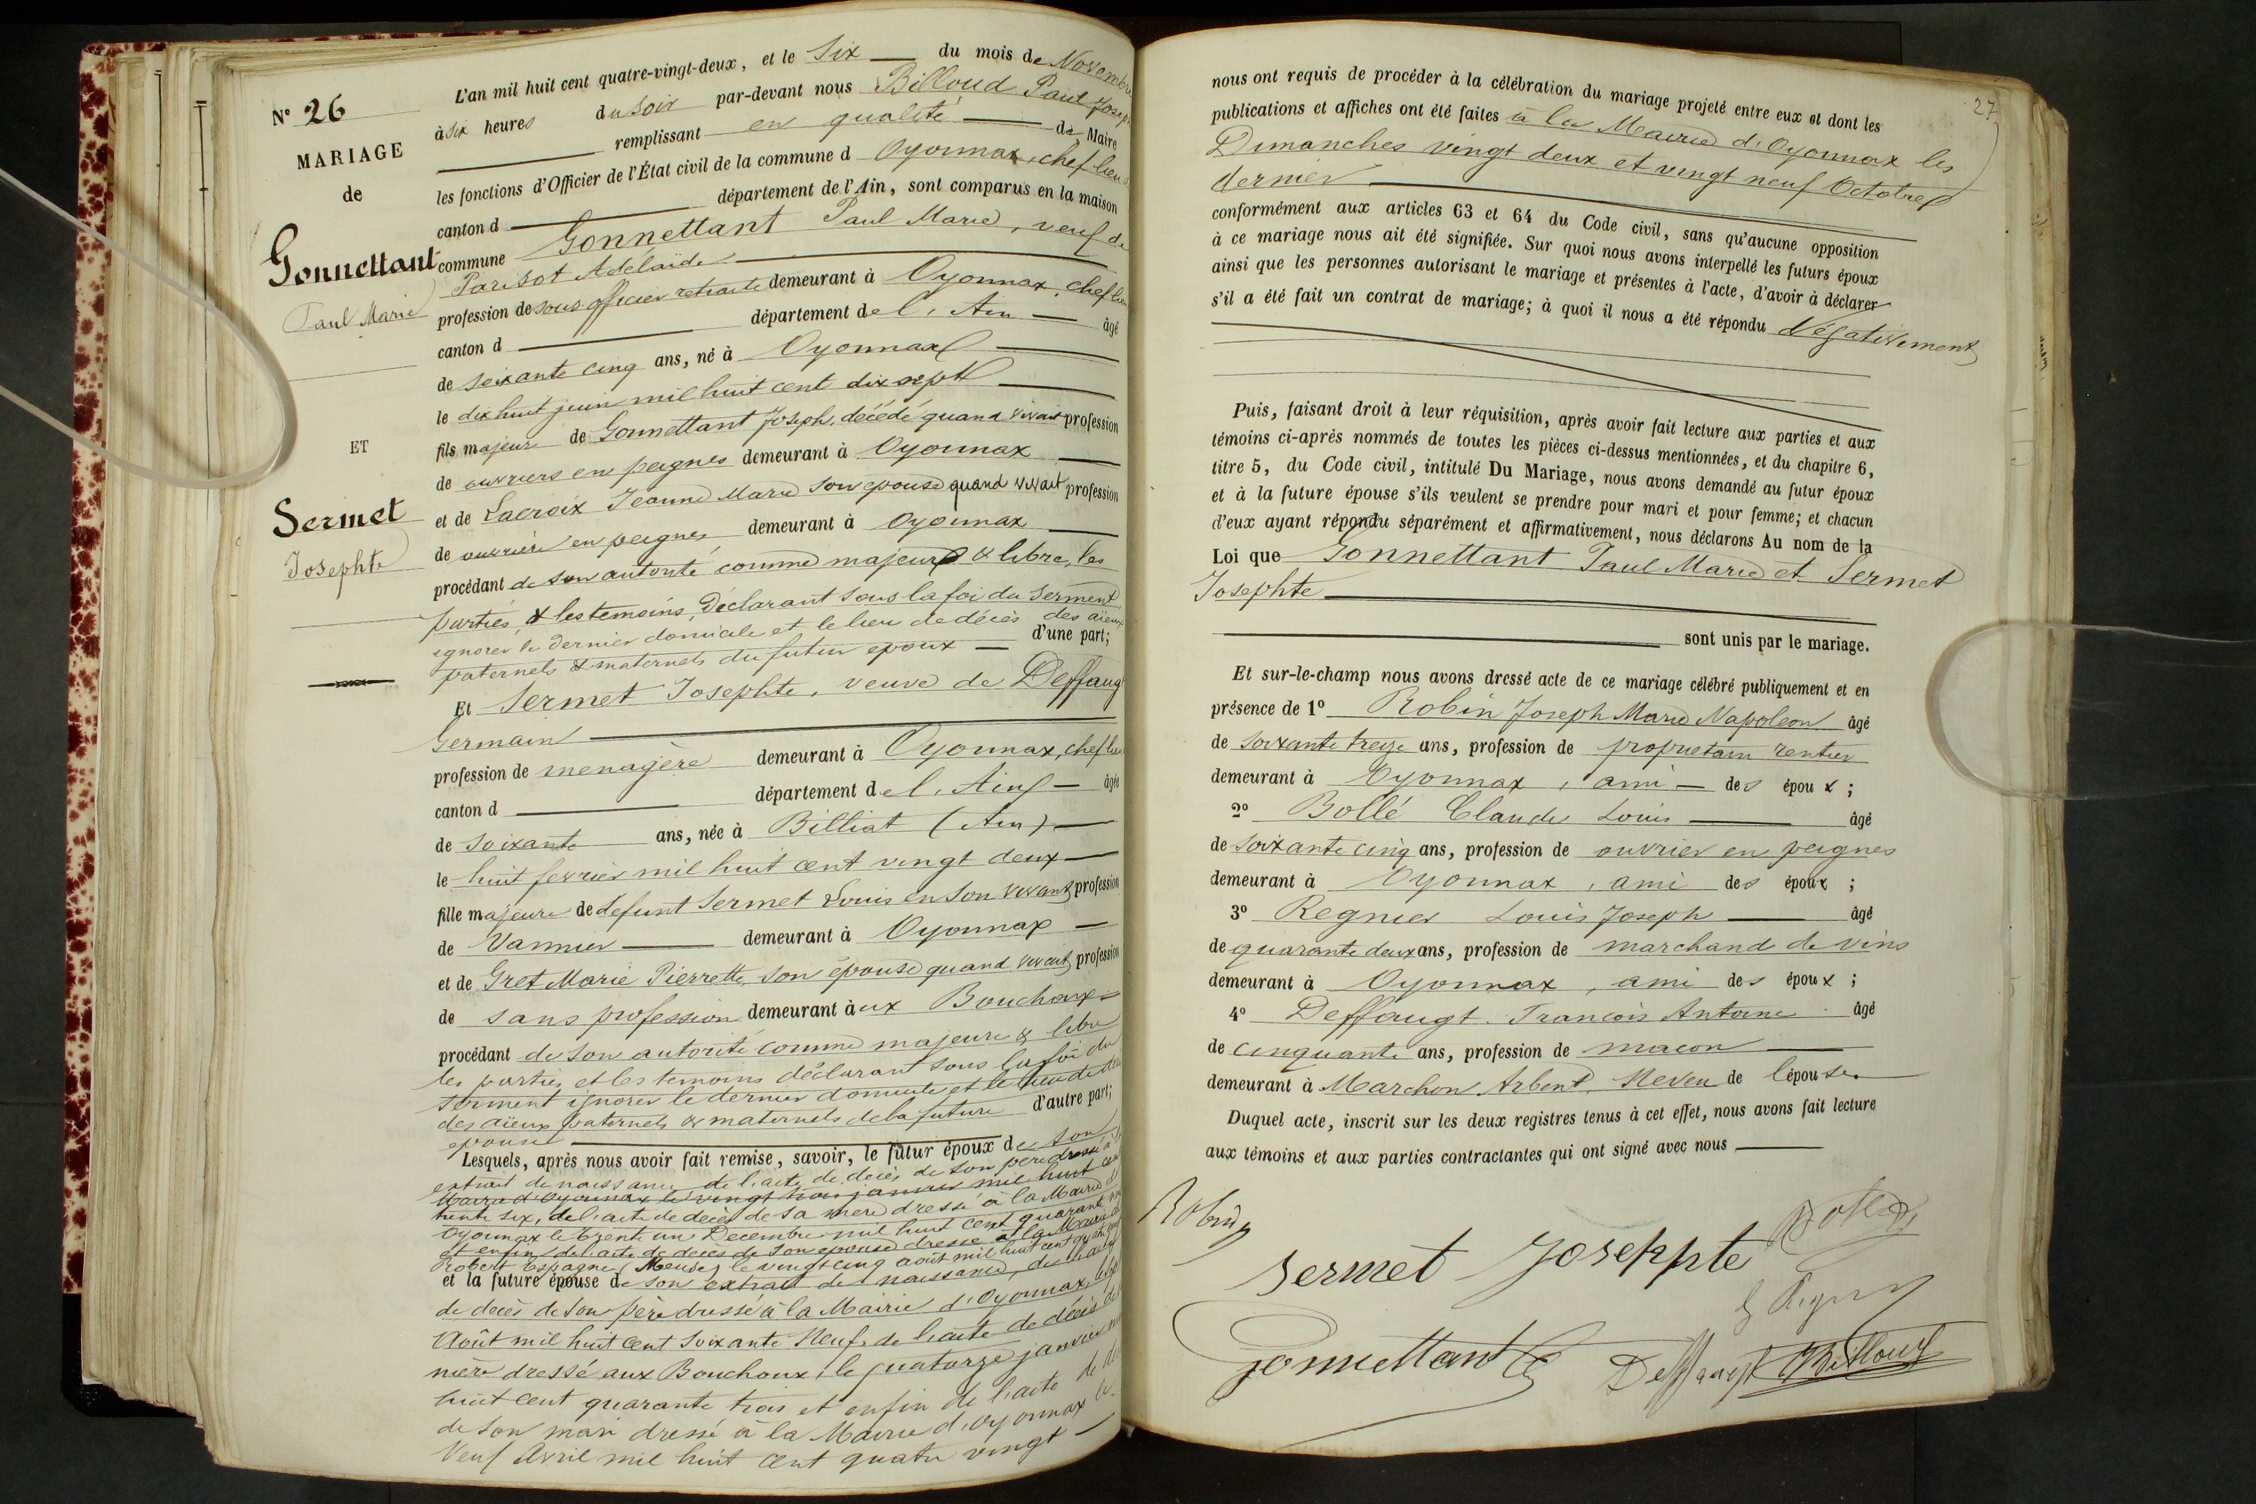 N° 26
MARIAGE
de
Gonnettant
Paul Marie
ET
Sermet
Josephte
L'an mil huit cent quatre-vingt-deux, et le Six du mois de Novembre
à six heures du soir par-devant nous Billoud Paul Joseph
remplissant en qualité de Maire
les fonctions d'Officier de l'État civil de la commune d Oyonnax, chef lieu de
canton d département de l'Ain, sont comparus en la maison
commune Gonnettant Paul Marie, veuf de
Parisot Adelaïde
profession de sous officier retraité demeurant à Oyonnax, chef lieu
canton d département de l'Ain âgé
de soixante cinq ans, né à Oyonnax
le dix huit juin mil huit cent dix sept
fils majeur de Gonnettant Joseph, décédé quand vivait profession
de ouvriers en peignes demeurant à Oyonnax
et de Lacroix Jeanne Marie son epouse quand vivait profession
de ouvrière en peignes demeurant à Oyonnax
procédant de son autorité comme majeur & libre, les
parties & les temoins, déclarant sous la foi du serment
ignorer le dernier domicile et le lieu de décès des aïeux
paternels & maternels du futur epoux d'une part;
Et Sermet Josephte, veuve de Deffaugt
Germain
profession de menagère demeurant à Oyonnax, chef lieu
canton d département de l'Ain âgée
de soixante ans, née à Billiat (Ain)
le huit fevrier mil huit cent vingt deux
fille majeure de defunt Sermet Louis en son vivant profession
de Vannier demeurant à Oyonnax
et de Gret Marie Pierrette, son épouse quand vivait profession
de sans profession demeurant aux Bouchoux
procédant de son autorité comme majeure & libre
les parties et les temoins déclarant sous la foi du
serment ignorer le dernier domicile et le lieu de décès
des aïeux paternels & maternels de la future d'autre part;
epouse
Lesquels, après nous avoir fait remise, savoir, le futur époux de son
extrait de naissance de l'acte de décès de son père dressé à la
Mairie d'Oyonnax le vingt trois janvier mil huit cent
trente six, de l'acte de decès de sa mère dressé à la Mairie d'
Oyonnax le trente un Decembre mil huit cent quarante
et enfin de l'acte de deces de son epouse dressé à la Mairie de
Robert Espagne (Meuse) le vingt cinq août mil huit cent quatre
et la future épouse de son extrait de naissance, de l'acte
de decès de son père dressé à la Mairie d'Oyonnax, le
Août mil huit cent soixante Neuf, de l'acte de décès de sa
mère dressé aux Bouchoux, le quatorze janvier mil
huit cent quarante trois et enfin de l'acte de décès
de son mari dressé à la Mairie d'Oyonnax le
Neuf Avril mil huit cent quatre vingt
27
nous ont requis de procéder à la célébration du mariage projeté entre eux et dont les
publications et affiches ont été faites à la Mairie d'Oyonnax les
Dimanches vingt deux et vingt neuf Octobre
dernier
conformément aux articles 63 et 64 du Code civil, sans qu'aucune opposition
à ce mariage nous ait été signifiée. Sur quoi nous avons interpellé les futurs époux
ainsi que les personnes autorisant le mariage et présentes à l'acte, d'avoir à déclarer
s'il a été fait un contrat de mariage; à quoi il nous a été répondu Négativement
Puis, faisant droit à leur réquisition, après avoir fait lecture aux parties et aux
témoins ci-après nommés de toutes les pièces ci-dessus mentionnées, et du chapitre 6,
titre 5, du Code civil, intitulé Du Mariage, nous avons demandé au futur époux
et à la future épouse s'ils veulent se prendre pour mari et pour femme; et chacun
d'eux ayant répondu séparément et affirmativement, nous déclarons Au nom de la
Loi que Gonnettant Paul Marie et Sermet
Josephte
sont unis par le mariage.
Et sur-le-champ nous avons dressé acte de ce mariage célébré publiquement et en
présence de 1° Robin Joseph Marie Napoleon âgé
de soixante treize ans, profession de proprietaire rentier
demeurant à Oyonnax, ami des époux;
2° Bollé Claude Louis âgé
de soixante cinq ans, profession de ouvrier en peignes
demeurant à Oyonnax, ami des époux;
3° Regnier Louis Joseph âgé
de quarante deux ans, profession de marchand de vins
demeurant à Oyonnax, ami des époux;
4° Deffaugt François Antoine âgé
de cinquante ans, profession de macon
demeurant à Marchon Arbent Neveu de l'épouse
Duquel acte, inscrit sur les deux registres tenus à cet effet, nous avons fait lecture
aux témoins et aux parties contractantes qui ont signé avec nous
Robin
Bollé
Sermet Joseppte
Gonnettant
Deffaugt Billoud